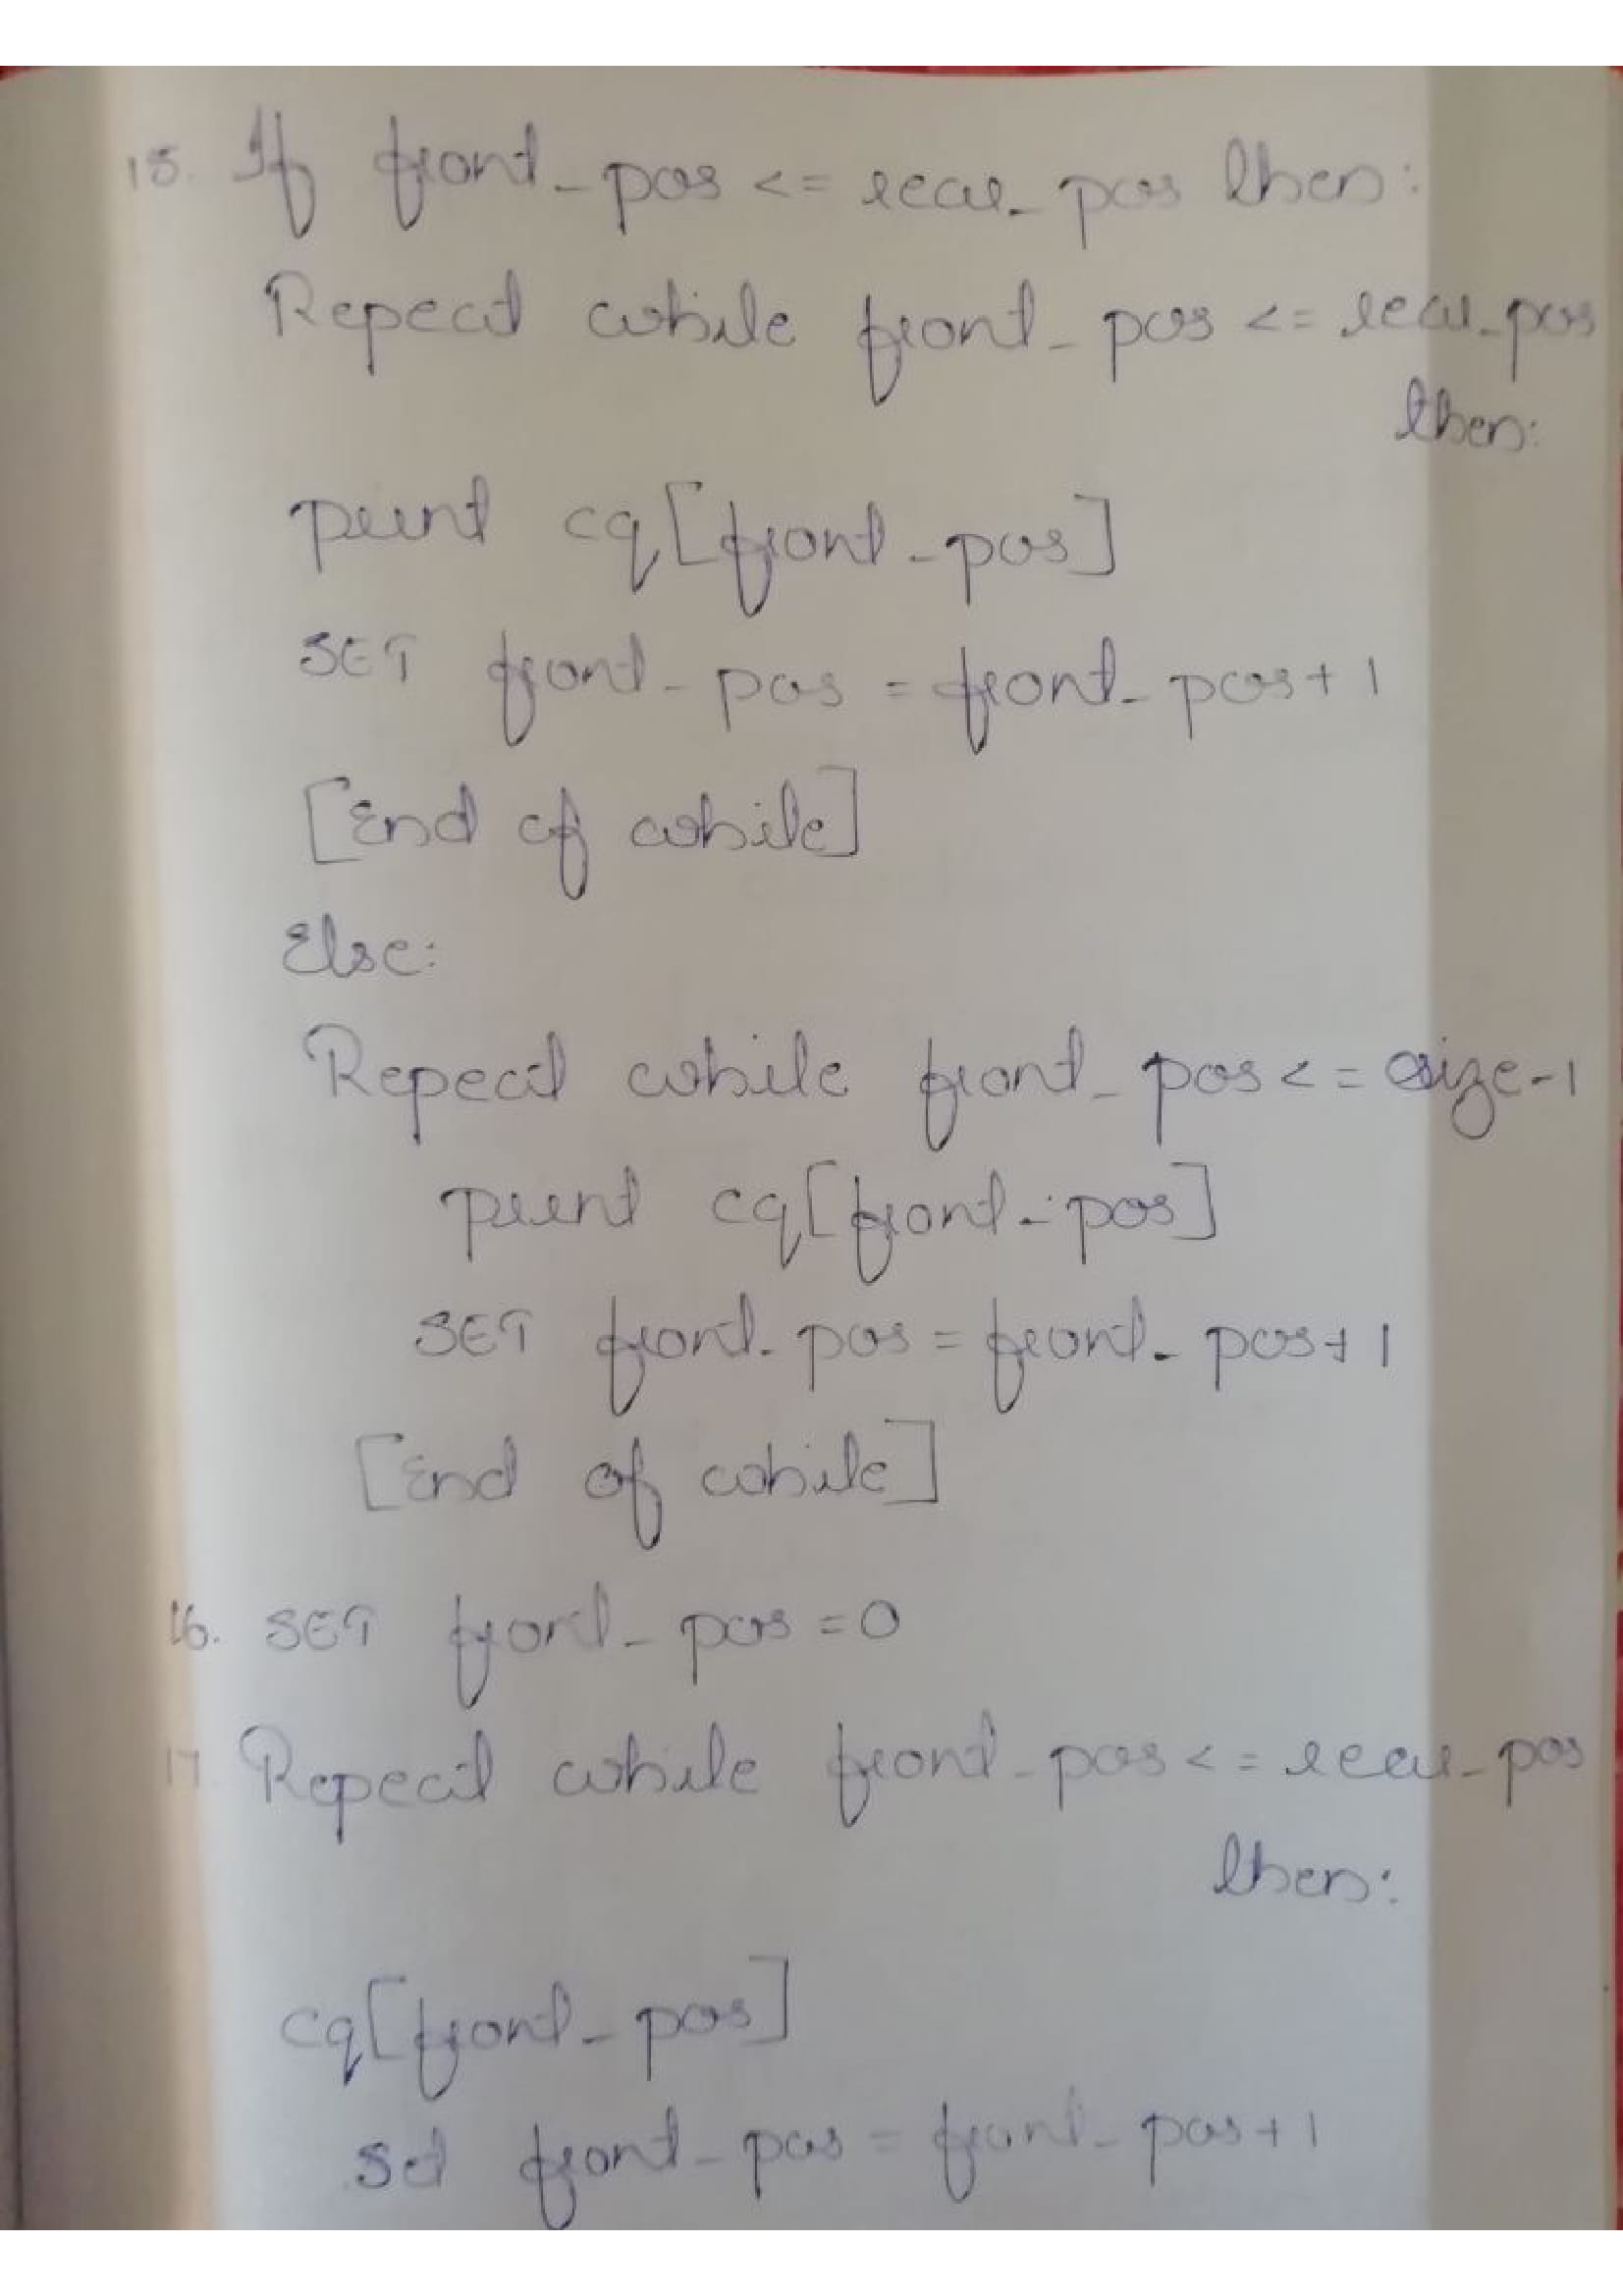 15. If front_pos <= rear_pos then:
Repeat while front_pos <= rear_pos
then:
print cq[front_pos]
SET front_pos = front_pos+1
[End of while]
Else:
Repeat while front_pos <= size-1
print cq[front_pos]
SET front_pos = front_pos+1
[End of while]
16. SET front_pos = 0
17 Repeat while front_pos <= rear_pos
then:
cq[front_pos]
Set front_pos = front_pos+1